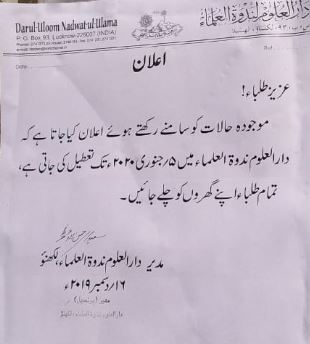 Darul-Uloom Nadwat-ul-Ulama
P. O. Box 93, Lucknow-226007 (INDIA)
دارالعلوم ندوۃ العلماء
Date
Ref
اعلان
عزیز طلباء!
موجودہ حالات کو سامنے رکھتے ہوئے اعلان کیا جاتا ہے کہ
دارالعلوم ندوۃ العلماء میں ۵/جنوری ۲۰۲۰ء تک تعطیل کی جاتی ہے،
تمام طلباء اپنے گھروں کو چلے جائیں۔
مدیر دارالعلوم ندوۃ العلماء، لکھنؤ
۱۶/دسمبر ۲۰۱۹ء